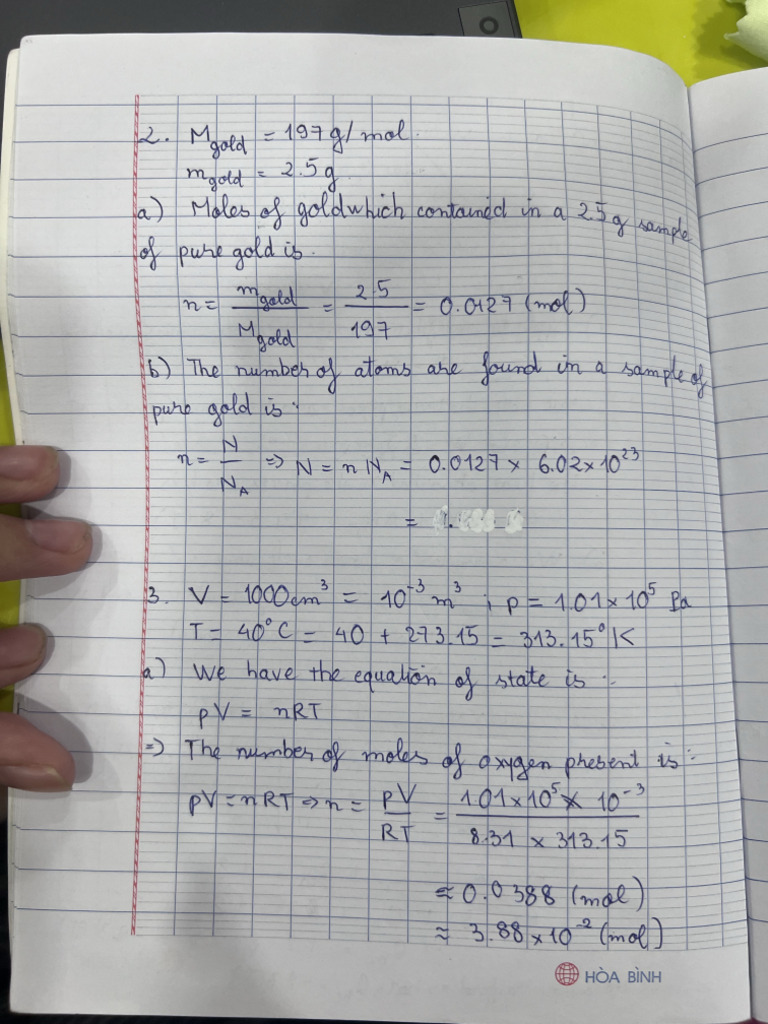 2. M_gold = 197 g/mol.
m_gold = 2.5 g
a) Moles of gold which contained in a 2.5 g sample
of pure gold is.
n = m_gold / M_gold = 2.5 / 197 = 0.0127 (mol)
b) The number of atoms are found in a sample of
pure gold is:
n = N / N_A => N = n N_A = 0.0127 × 6.02 × 10^23
=
3. V = 1000 cm³ = 10^-3 m³ ; p = 1.01 × 10^5 Pa
T = 40°C = 40 + 273.15 = 313.15°K
a) We have the equation of state is:
pV = nRT
=> The number of moles of oxygen present is:
pV = nRT => n = pV / RT = 1.01 × 10^5 × 10^-3 / 8.31 × 313.15
≈ 0.0388 (mol)
≈ 3.88 × 10^-2 (mol)
HÒA BÌNH